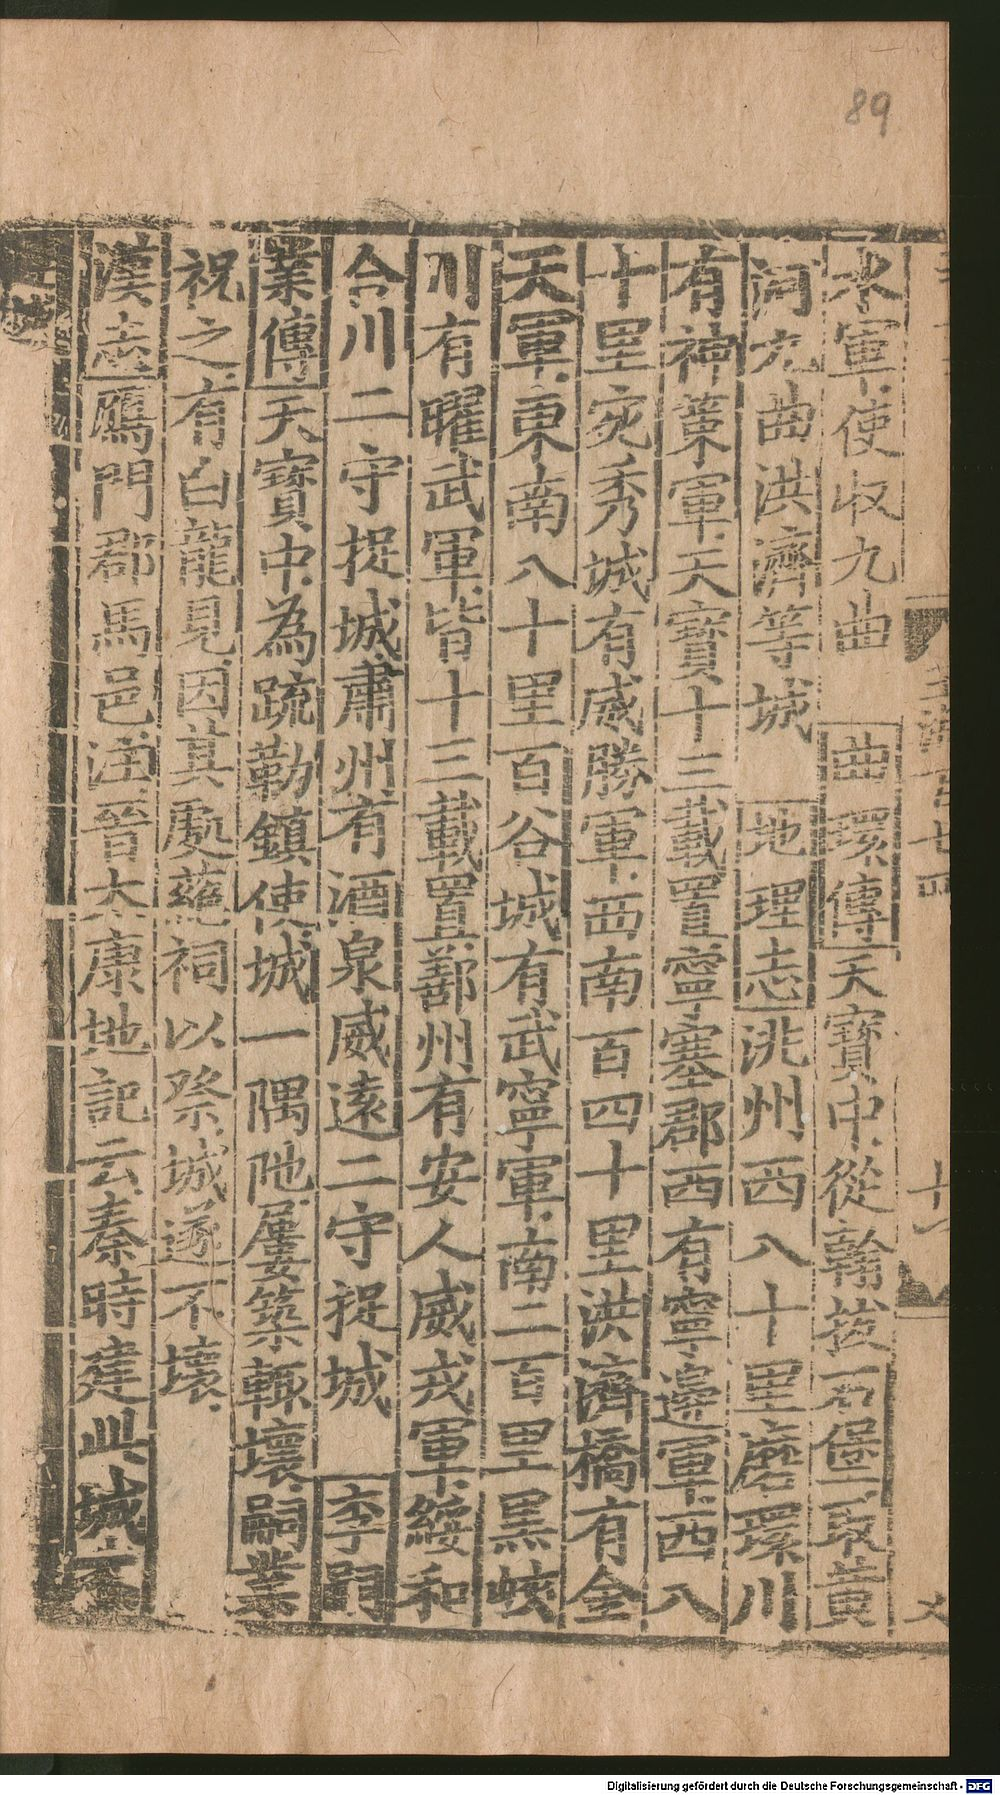 89
水軍使收九曲 曲環傳 天寶中從翰拔石堡取黃
河九曲洪濟等城 地理志 洮州西八十里磨環川
有神策軍天寶十三載置寧塞郡西有寧邊軍西八
十里宛秀城有威勝軍西南百四十里洪濟橋有金
天軍東南八十里百谷城有武寧軍南二百里黑峽
川有曜武軍皆十三載置鄯州有安人威戎軍綏和
合川二守捉城肅州有酒泉威遠二守捉城 李嗣
業傳 天寶中為疏勒鎮使城一隅阤屢築輒壞嗣業
祝之有白龍見因其處蕝祠以祭城遂不壞
漢志鴈門郡馬邑注晉太康地記云秦時建此城
Digitalisierung gefördert durch die Deutsche Forschungsgemeinschaft - DFG